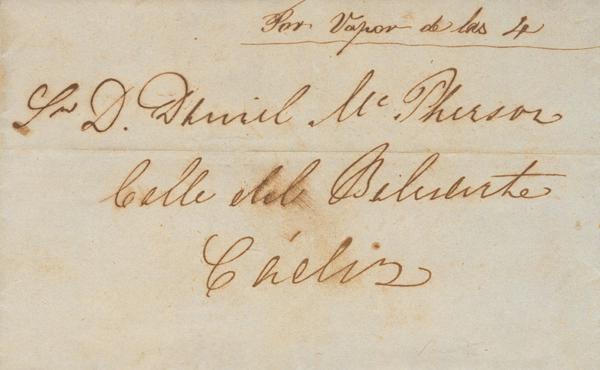 Por Vapor de las 4
Sor D. Daniel Mc Pherson
Calle del Baluarte
Cádiz